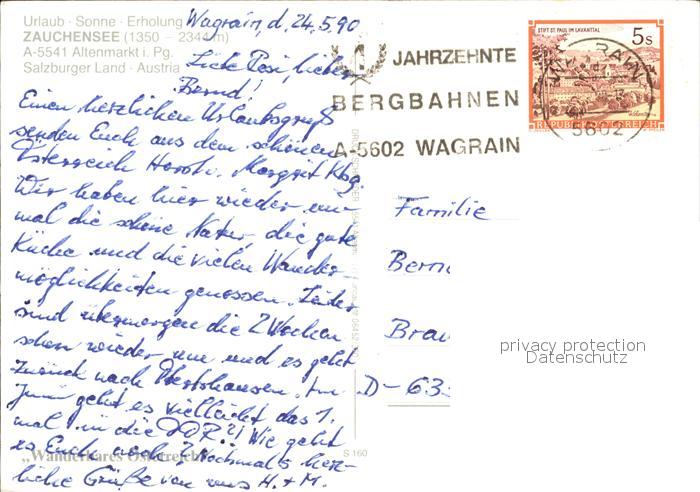 Urlaub · Sonne · Erholung
ZAUCHENSEE (1350 - 2344 m)
A-5541 Altenmarkt i. Pg.
Salzburger Land · Austria
Wagrain, d. 24.5.90
Liebe Rosi, lieber
Bernd!
Einen herzlichen Urlaubsgruß
senden Euch aus dem schönen
Österreich Horst u. Margrit
Wir haben hier wieder ein-
mal die schöne Natur, die gute
Küche und die vielen Wander-
möglichkeiten genossen. Leider
sind übermorgen die 2 Wochen
schon wieder um und es geht
zurück nach Im
Juni geht es vielleicht das 1.
mal in die DDR?! Wie geht
es Euch noch? Nochmals herz-
liche Grüße von uns H. + M.
„Wanderbares Österreich"
S 160
JAHRZEHNTE
BERGBAHNEN
A-5602 WAGRAIN
STIFT ST. PAUL IM LAVANTTAL
5s
REPUBLIK ÖSTERREICH
5602
Familie
Bern
Brau
D-63
privacy protection
Datenschutz